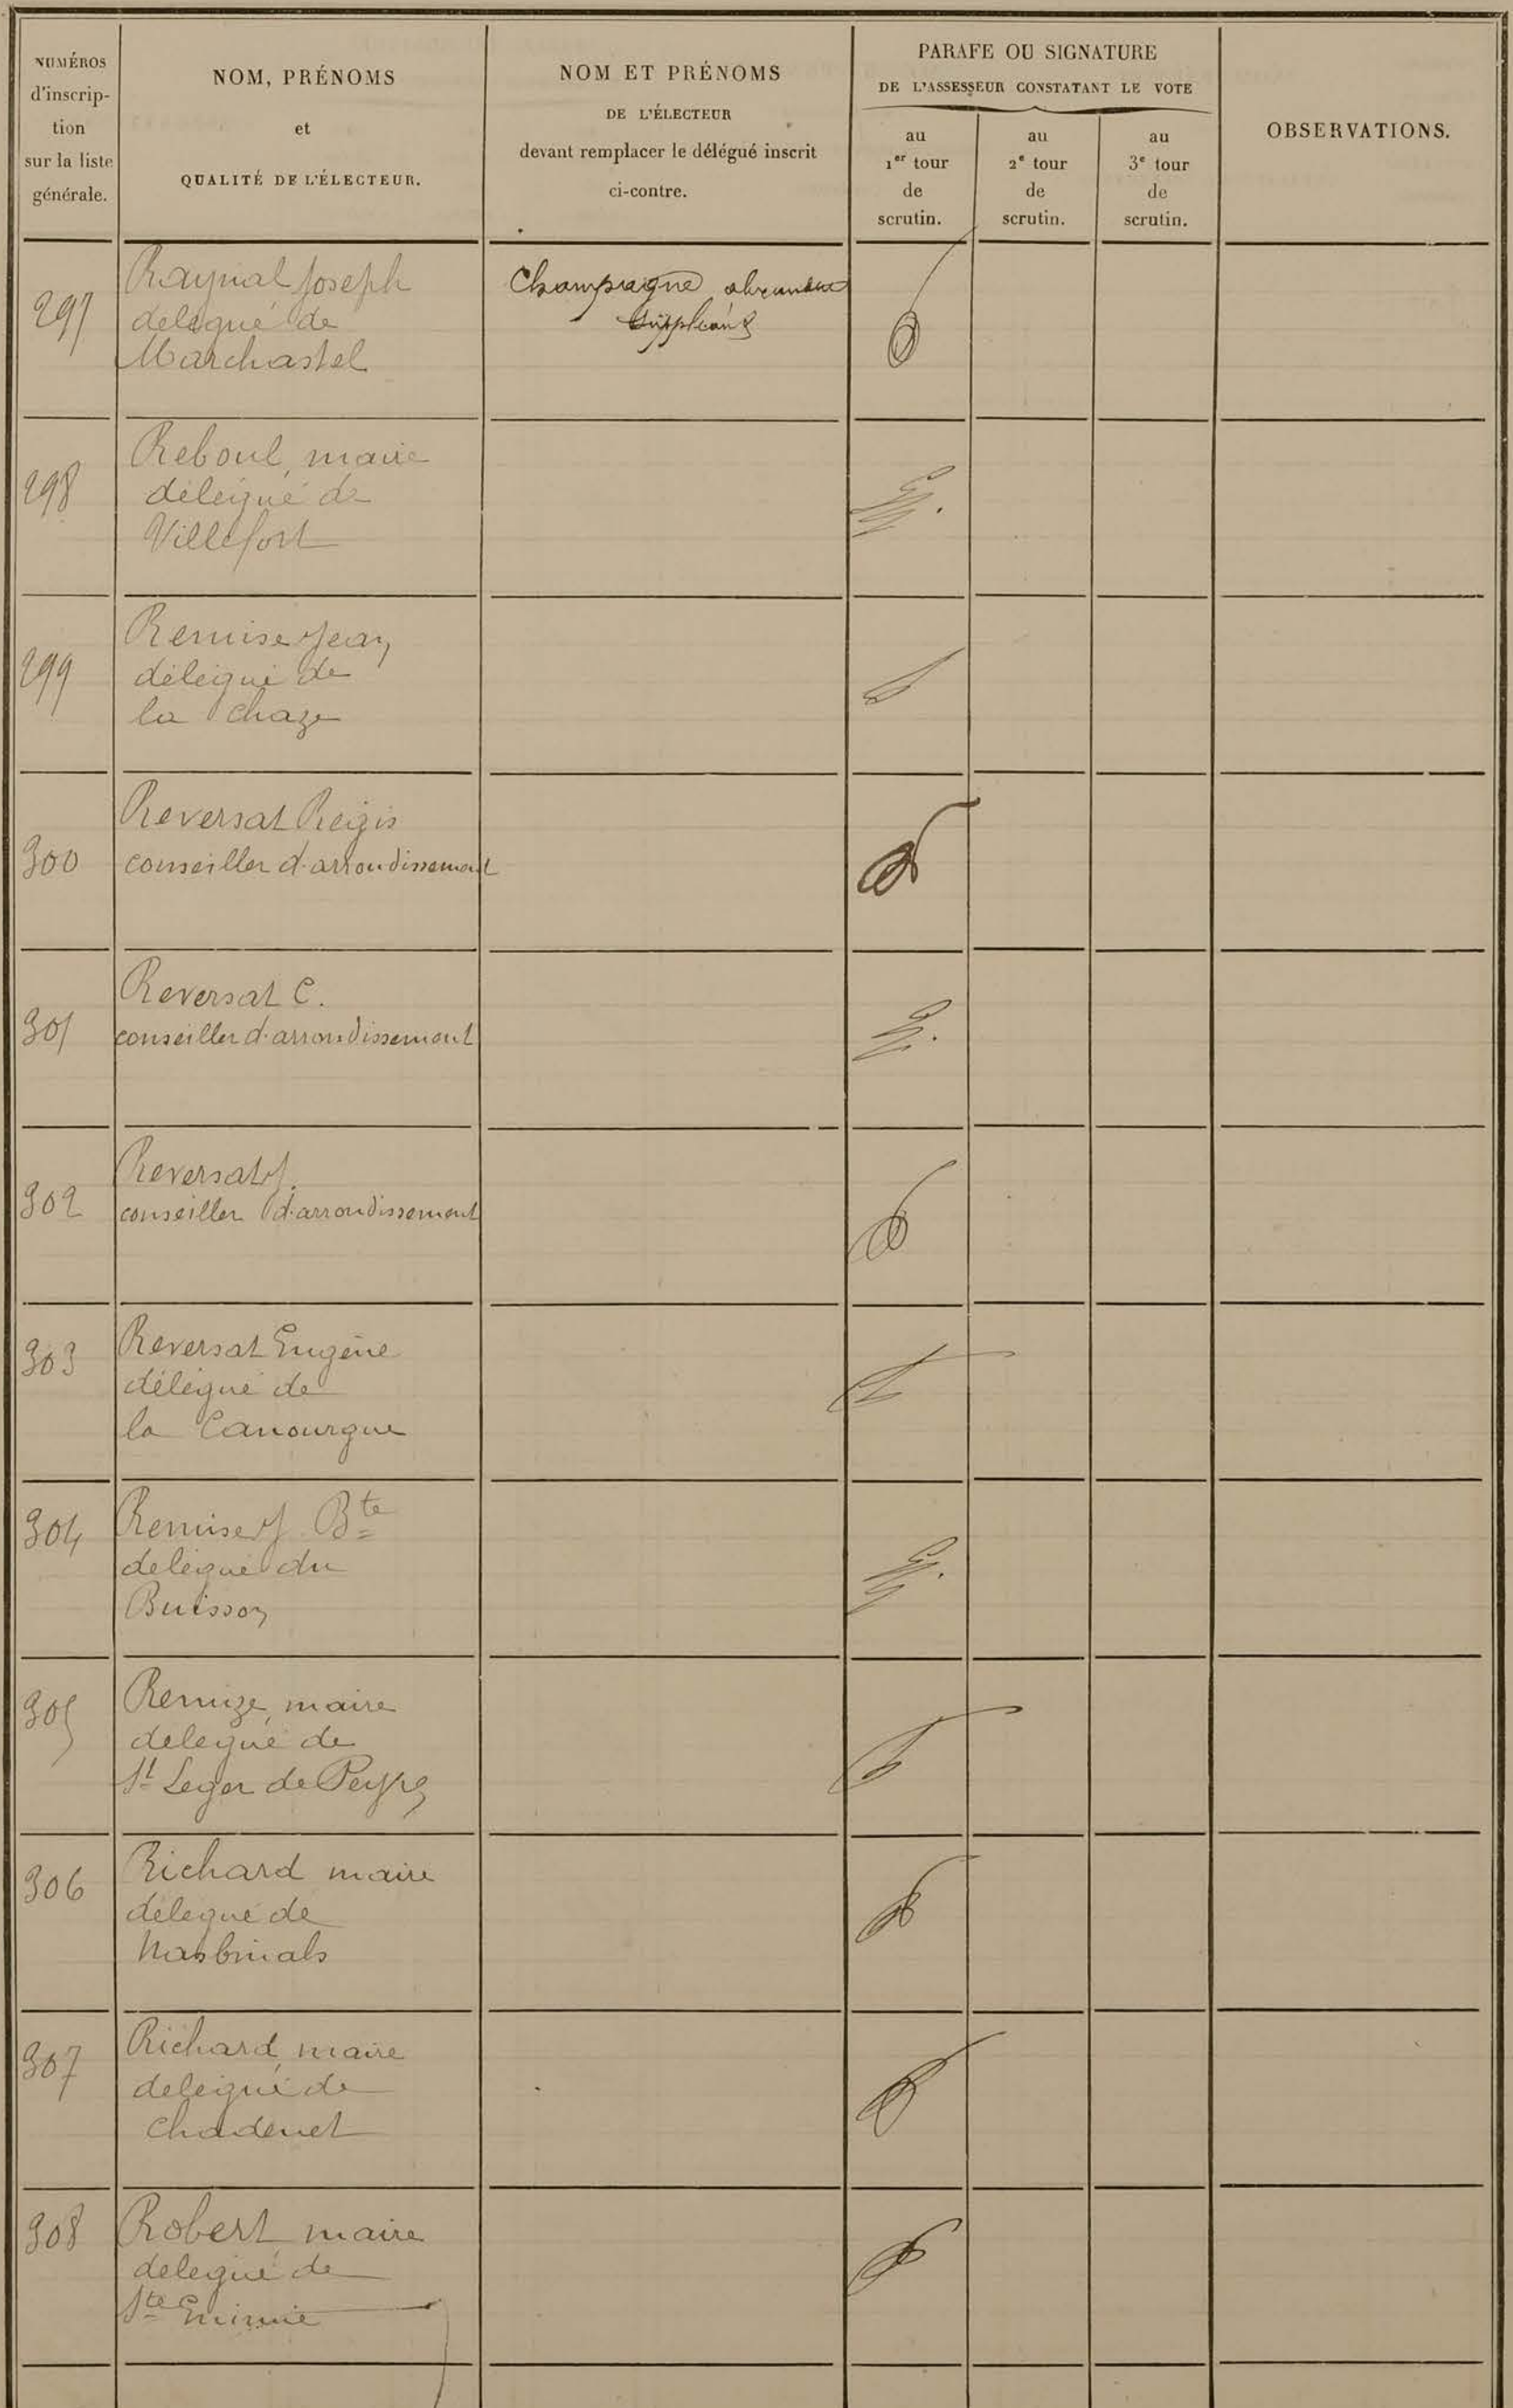 NUMÉROS
d'inscrip-
tion
sur la liste
générale.
NOM, PRÉNOMS
et
QUALITÉ DE L'ÉLECTEUR.
NOM ET PRÉNOMS
DE L'ÉLECTEUR
devant remplacer le délégué inscrit
ci-contre.
PARAFE OU SIGNATURE
DE L'ASSESSEUR CONSTATANT LE VOTE
au
1er tour
de
scrutin.
au
2e tour
de
scrutin.
au
3e tour
de
scrutin.
OBSERVATIONS.
297
Raynal Joseph
délégué de
Marchastel
Champagne
suppléant
298
Reboul, maire
délégué de
Villefort
299
Remise Jean
délégué de
la Chaze
300
Reversat Régis
conseiller d'arrondissement
301
Reversat C.
conseiller d'arrondissement
302
Reversat J.
conseiller d'arrondissement
303
Reversat Eugène
délégué de
la Canourgue
304
Remise J Bte
délégué du
Buisson
305
Remize, maire
délégué de
St Leger de Peyre
306
Richard maire
délégué de
Nasbinals
307
Richard, maire
délégué de
Chadenet
308
Robert maire
délégué de
Ste Enimie